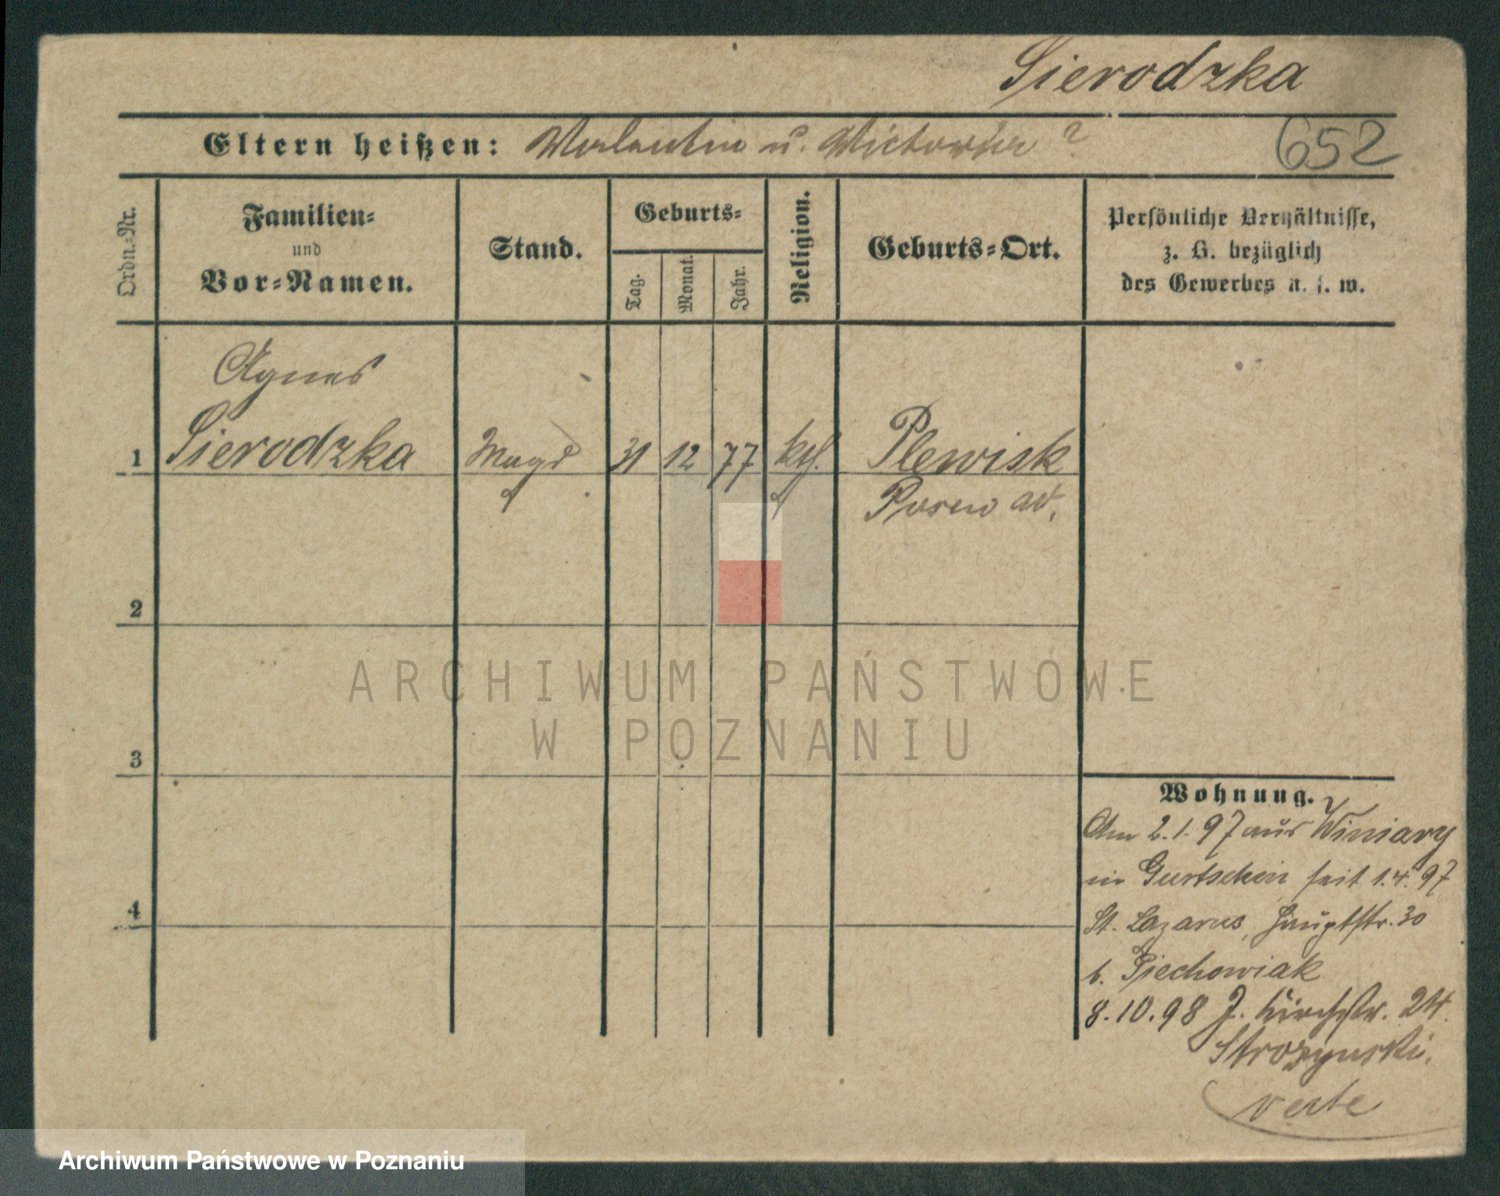 Sierodzka
Eltern heißen: Valentin u. Victoria ?
652
Ordn.-Nr.
Familien-
und
Vor-Namen.
Stand.
Geburts-
Tag.
Monat.
Jahr.
Religion.
Geburts-Ort.
Persönliche Verhältnisse,
z. B. bezüglich
des Gewerbes u. s. w.
Agnes
1 Sierodzka Magd 31 12 77 kth. Plewisk
Posen
2
3
4
Wohnung.
Am 2.1.97 aus Winiary
in Gurtschin seit 1.4.97
St. Lazarus, Hauptstr. 30
b. Piechowiak
8.10.98 J. Kirchstr. 24.
Strozynski.
verte
ARCHIWUM PAŃSTWOWE
W POZNANIU
Archiwum Państwowe w Poznaniu